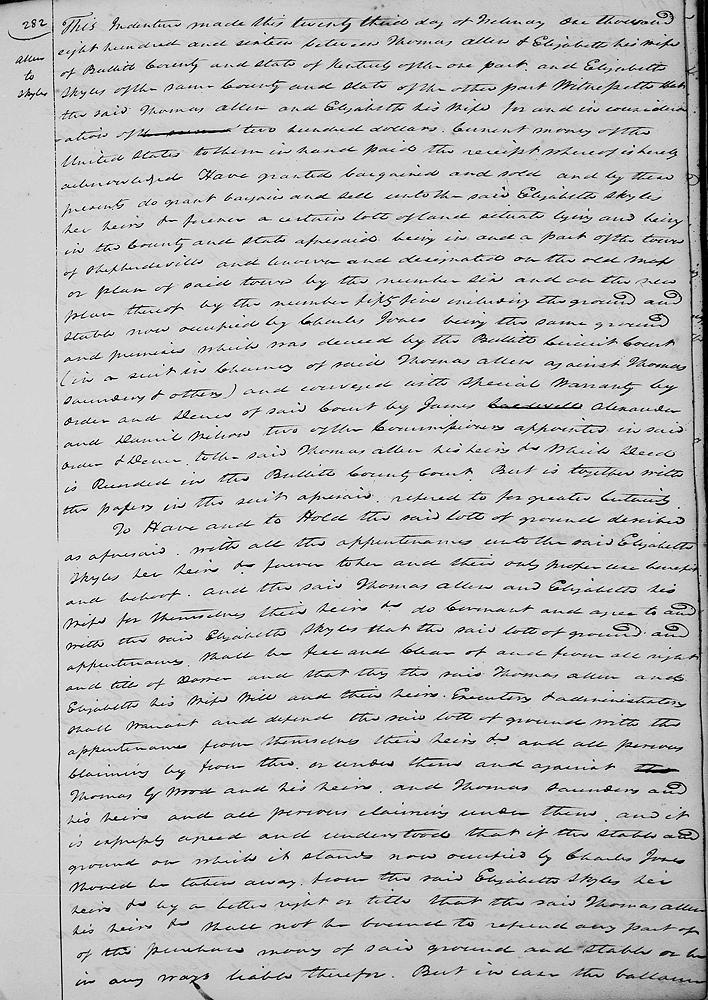 282
Allen
to
Skyles
This Indenture made this twenty third day of Febuay One thousand
eight hundred and sixteen between Thomas Allen & Elizabeth his wife
of Bullitt County and State of Kentucky of the one part. and Elizabeth
Skyles of the same County and State of the other part Witnesseth that
the said Thomas Allen and Elizabeth his Wife for and in consider
ation of two hundred dollars. Current money of the
United States to them in hand paid the receipt whereof is hereby
acknowledged Have granted bargained and sold and by these
presents do grant bargain and sell unto the said Elizabeth Skyles
her heirs &c forever a certain lott of land situate lying and being
in the County and State aforesaid being in and a part of the town
of Shepherdsville and known and designated on the old map
or plan of said town by the number six and on the new
plan thereof by the number fifty five including the ground and
Stable now occupied by Charles Jones being the same ground
and premises which was decreed by the Bullitt Circuit Court
(in a suit in Chancery of said Thomas Allen against Thomas
Saunders & others) and conveyed with Special Warranty by
order and Decree of said Court by James Alexander
and Daniel Wilson two of the Commissioners appointed in said
order & Decree to the said Thomas Allen his heirs &c Which Deed
is Recorded in the Bullitt County Court. But is together with
the papers in the suit aforesaid. refered to for greater Certainty
To Have and to Hold the said lott of ground described
as aforesaid. with all the appurtenances unto the said Elizabeth
Skyles her heirs &c forever to her and their only proper use benefit
and behoof. and the said Thomas Allen and Elizabeth his
Wife for themselves their heirs &c do Covenant and agree to and
with the said Elizabeth Skyles that the said lott of ground. and
appurtenances. Shall be free and Clear of and from all right
and title of Dower and that they the said Thomas Allen and
Elizabeth his Wife Will and their heirs. Executors & administrators
shall warrant and defend the said lott of ground with the
appurtenances from themselves their heirs &c and all persons
Claiming by from thro. or under them and against
Thomas G Wood and his heirs. and Thomas Saunders and
his heirs and all persons claiming under them. and it
is expressly agreed and understood that if the stable and
ground on which it stands now occupied by Charles Jones
Should be taken away. from the said Elizabeth Skyles her
heirs &c by a better right or title that the said Thomas Allen
his heirs &c shall not be bound to refund any part of
of the purchase money of said ground and stable or be
in any ways liable therefor. But in case the ballance